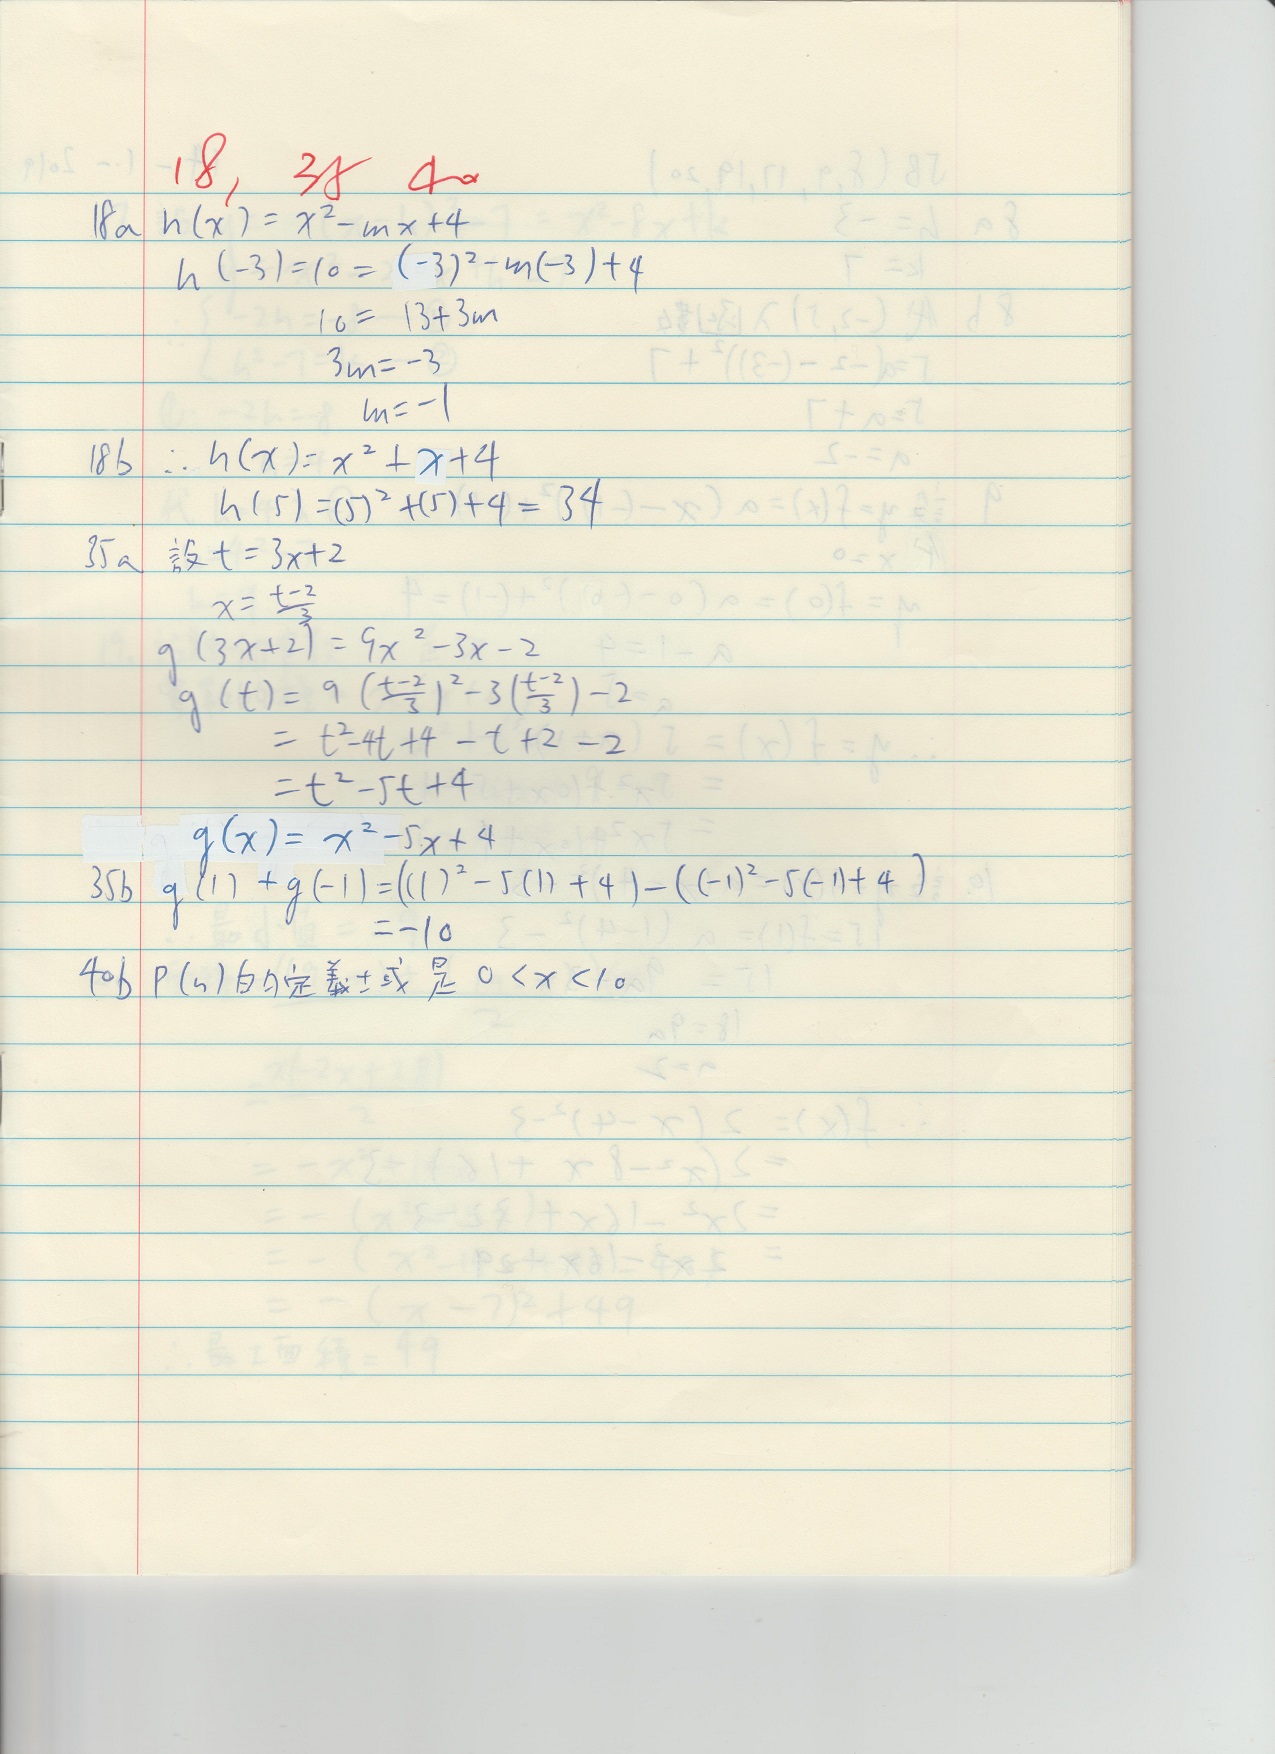 18, 35 40
18a h(x) = x² - mx + 4
h(-3) = 10 = (-3)² - m(-3) + 4
10 = 13 + 3m
3m = -3
m = -1
18b ∴ h(x) = x² + x + 4
h(5) = (5)² + (5) + 4 = 34
35a 設 t = 3x+2
x = (t-2)/3
g(3x+2) = 9x² - 3x - 2
g(t) = 9((t-2)/3)² - 3((t-2)/3) - 2
= t² - 4t + 4 - t + 2 - 2
= t² - 5t + 4
g(x) = x² - 5x + 4
35b g(1) + g(-1) = ((1)² - 5(1) + 4) - ((-1)² - 5(-1) + 4)
= -10
40b P(n) 的定義域是 0 < x < 10